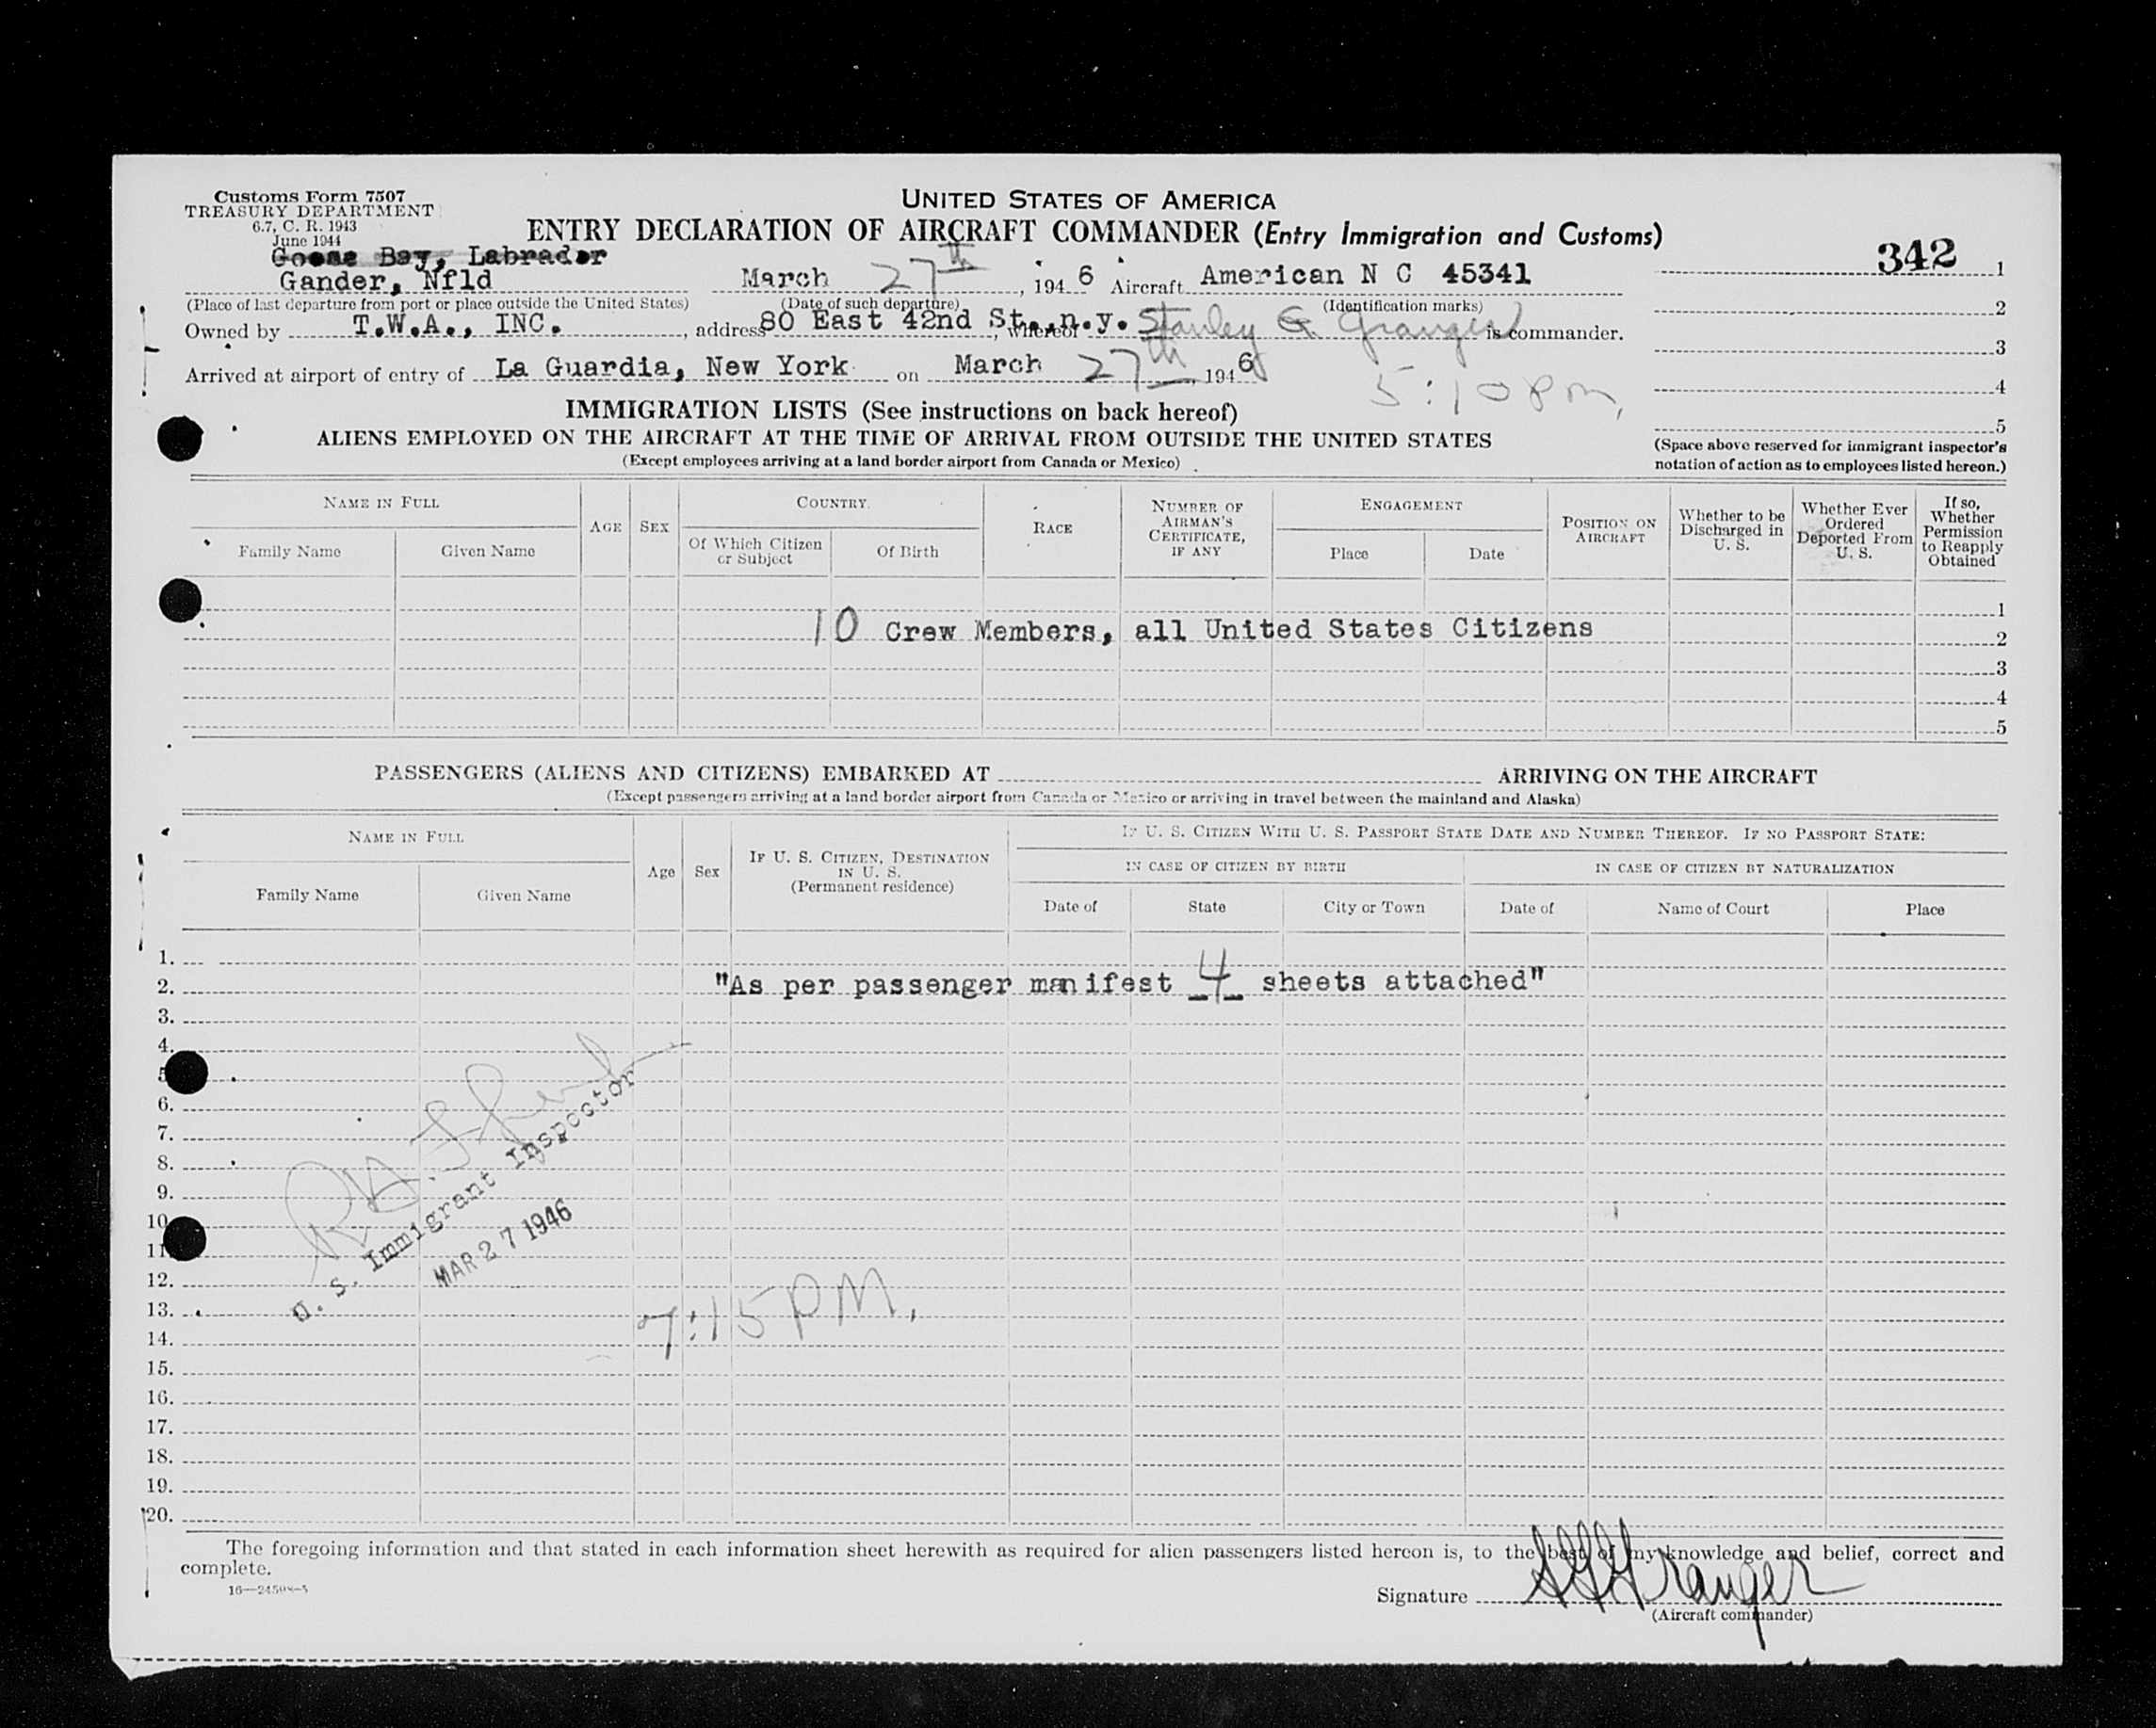 Customs Form 7507
TREASURY DEPARTMENT
6.7, C. R. 1943
June 1944
UNITED STATES OF AMERICA
ENTRY DECLARATION OF AIRCRAFT COMMANDER (Entry Immigration and Customs)
342 1
Goose Bay, Labrador
Gander, Nfld March 27th, 1946 Aircraft American N C 45341
(Place of last departure from port or place outside the United States) (Date of such departure) (Identification marks)
2
Owned by T.W.A., INC., address 80 East 42nd St. n.y., whereof Stanley G. Granger is commander.
3
Arrived at airport of entry of La Guardia, New York on March 27th, 1946
5:10 pm,
4
5
(Space above reserved for immigrant inspector's notation of action as to employees listed hereon.)
IMMIGRATION LISTS (See instructions on back hereof)
ALIENS EMPLOYED ON THE AIRCRAFT AT THE TIME OF ARRIVAL FROM OUTSIDE THE UNITED STATES
(Except employees arriving at a land border airport from Canada or Mexico)
NAME IN FULL
Family Name
Given Name
AGE
SEX
COUNTRY
Of Which Citizen or Subject
Of Birth
RACE
NUMBER OF AIRMAN'S CERTIFICATE, IF ANY
ENGAGEMENT
Place
Date
POSITION ON AIRCRAFT
Whether to be Discharged in U. S.
Whether Ever Ordered Deported From U. S.
If so, Whether Permission to Reapply Obtained
1
10 Crew Members, all United States Citizens
2
3
4
5
PASSENGERS (ALIENS AND CITIZENS) EMBARKED AT ARRIVING ON THE AIRCRAFT
(Except passengers arriving at a land border airport from Canada or Mexico or arriving in travel between the mainland and Alaska)
NAME IN FULL
Family Name
Given Name
Age
Sex
IF U. S. CITIZEN, DESTINATION IN U. S.
(Permanent residence)
IF U. S. CITIZEN WITH U. S. PASSPORT STATE DATE AND NUMBER THEREOF. IF NO PASSPORT STATE:
IN CASE OF CITIZEN BY BIRTH
Date of
State
City or Town
IN CASE OF CITIZEN BY NATURALIZATION
Date of
Name of Court
Place
1.
2. "As per passenger manifest 4 sheets attached"
3.
4.
5
6.
7.
8.
9.
10
11
12.
13.
14.
15.
16.
17.
18.
19.
20.
U. S. Immigrant Inspector
MAR 27 1946
7:15 PM.
The foregoing information and that stated in each information sheet herewith as required for alien passengers listed hereon is, to the best of my knowledge and belief, correct and
complete.
16—24598-5
Signature S G Granger
(Aircraft commander)